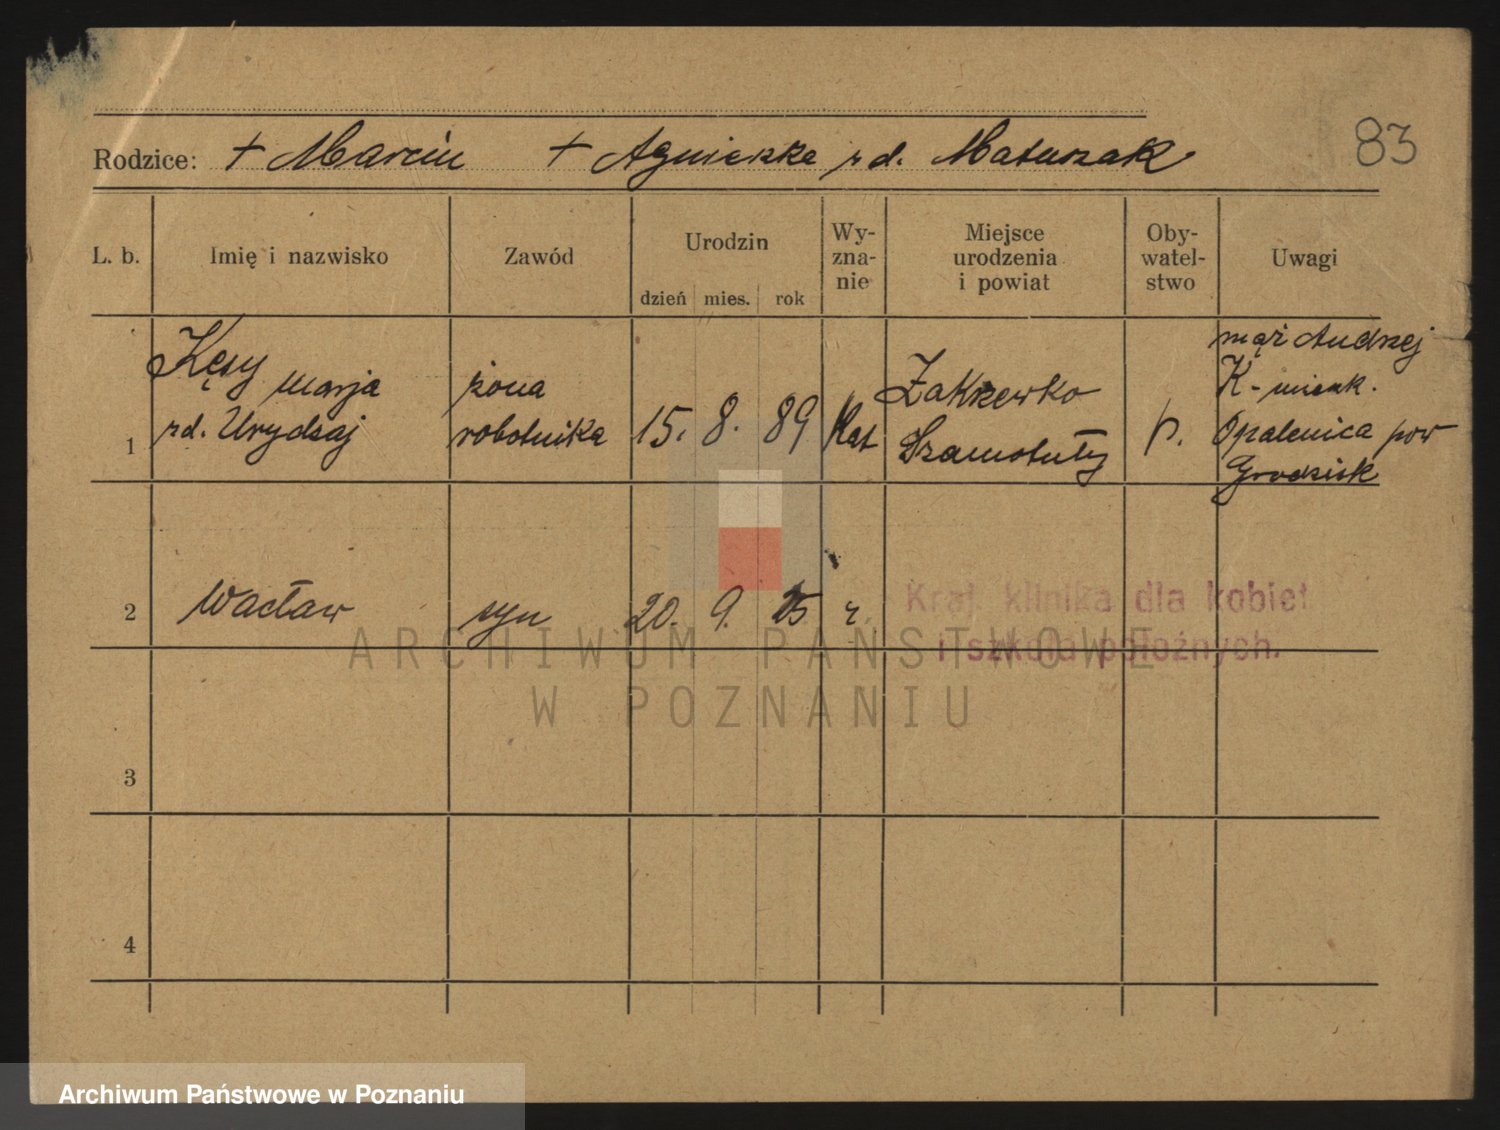 83
Rodzice: + Marcin + Agnieszka rd. Matuszak
L. b. Imię i nazwisko Zawód Urodzin Wy-zna-nie Miejsce urodzenia i powiat Oby-watel-stwo Uwagi
dzień mies. rok
Kęsy Marja
rd. Urydzaj
żona
robotnika
15. 8. 89 Kat
Zakrzewko
Szamotuły
p.
mąż Andrzej
K-mieszk.
Opalenica pow
Grodzisk
1
2 Wacław syn 20. 9. 25 r.
Kraj. klinika dla kobiet
i szkoła położnych.
3
4
ARCHIWUM PAŃSTWOWE
W POZNANIU
Archiwum Państwowe w Poznaniu